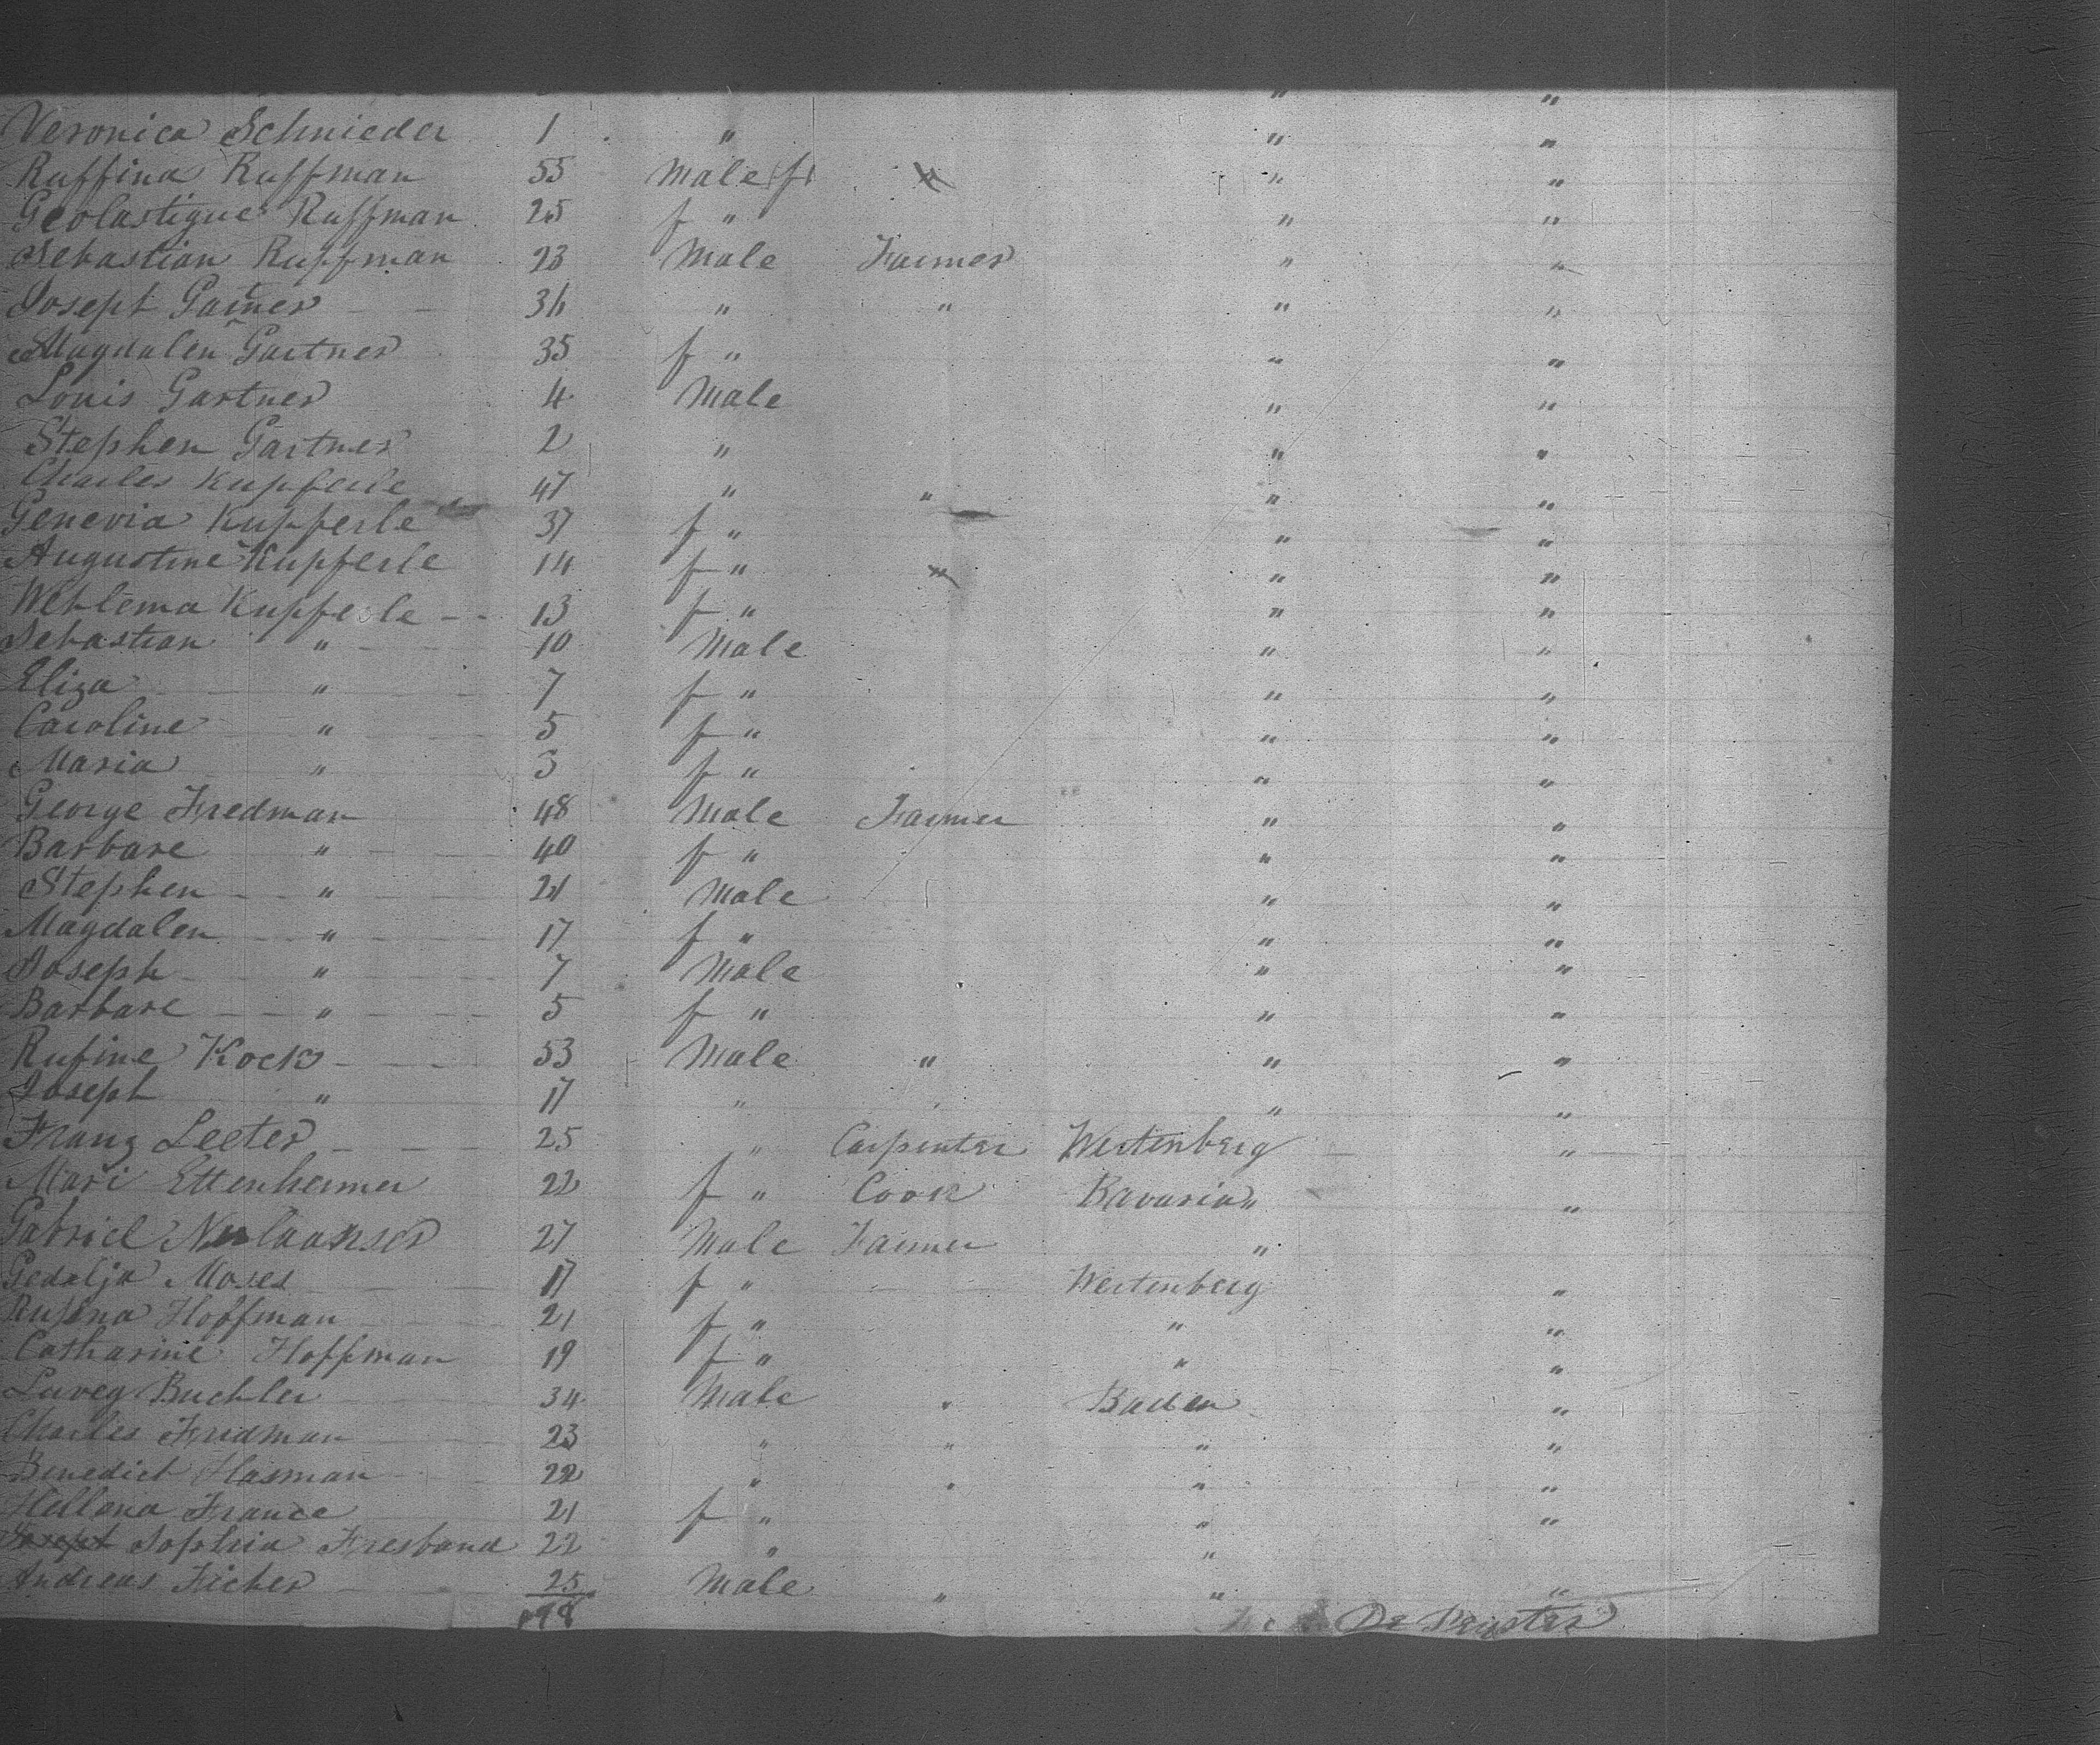 " "
Veronica Schnieder 1 " " "
Ruffina Ruffman 55 Male f " "
Geolastique Ruffman 25 f " " "
Sebastian Ruffman 23 Male Farmer " "
Joseph Gartner 36 " " " "
Magdalen Gartner 35 f " " "
Louis Gartner 4 Male " "
Stephen Gartner 2 " " "
Charles Kupferle 47 " " " "
Genevia Kupferle 37 f " " "
Augustine Kupferle 14 f " " " "
Wehlema Kupferle 13 f " " "
Sebastian " 10 Male " "
Eliza " 7 f " " "
Caroline " 5 f " " "
Maria " 3 f " " "
George Fredman 48 Male Farmer " "
Barbare " 40 f " " "
Stephen " 21 Male " "
Magdalen " 17 f " " "
Joseph " 7 Male " "
Barbare " 5 f " " "
Rufine Kock 53 Male " " "
Joseph " 17 " " " "
Franz Leeter 25 " Carpenter Wertenberg "
Mari Ettenheimer 22 f " Cook Bavaria " "
Gabriel 27 Male Farmer "
Gedalja Moses 17 f " Wertenberg "
Rufina Hoffman 21 f " " "
Catharine Hoffman 19 f " " "
Luveg Buchler 34 Male " Baden "
Charles Fridman 23 " " " "
Benedict Hasman 22 " " " "
Hellena France 21 f " " "
Joseph Sophia Fresband 22 " "
Andreas Ficher 25 Male " " "
198 De Peyster